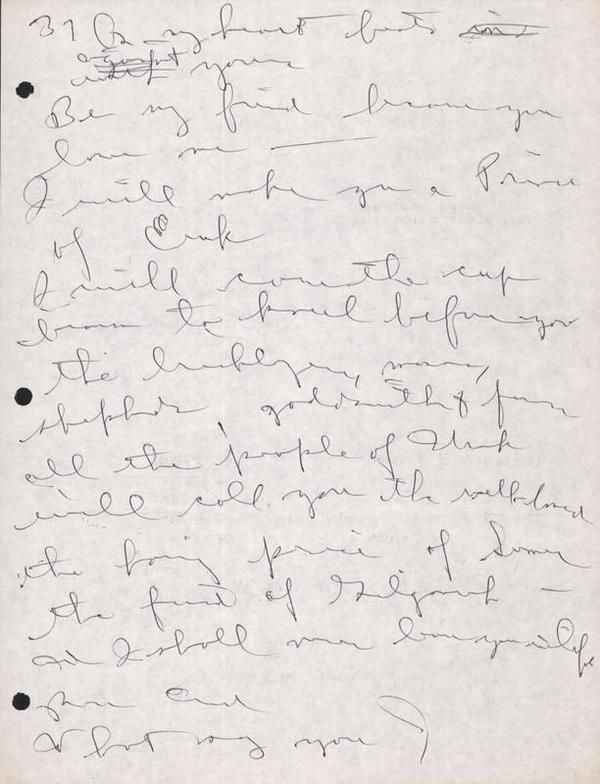 37 my heart beats
yours
Be my friend because you
love me —
I will make you a Prince
of Uruk
I will cause the cup
to kneel before you
the bricklayers, masons,
shepherds goldsmiths &
all the people of Uruk
will call you the well-loved
the prince of Sumer
the friend of Gilgamesh —
I shall never leave you
your End
What say you?